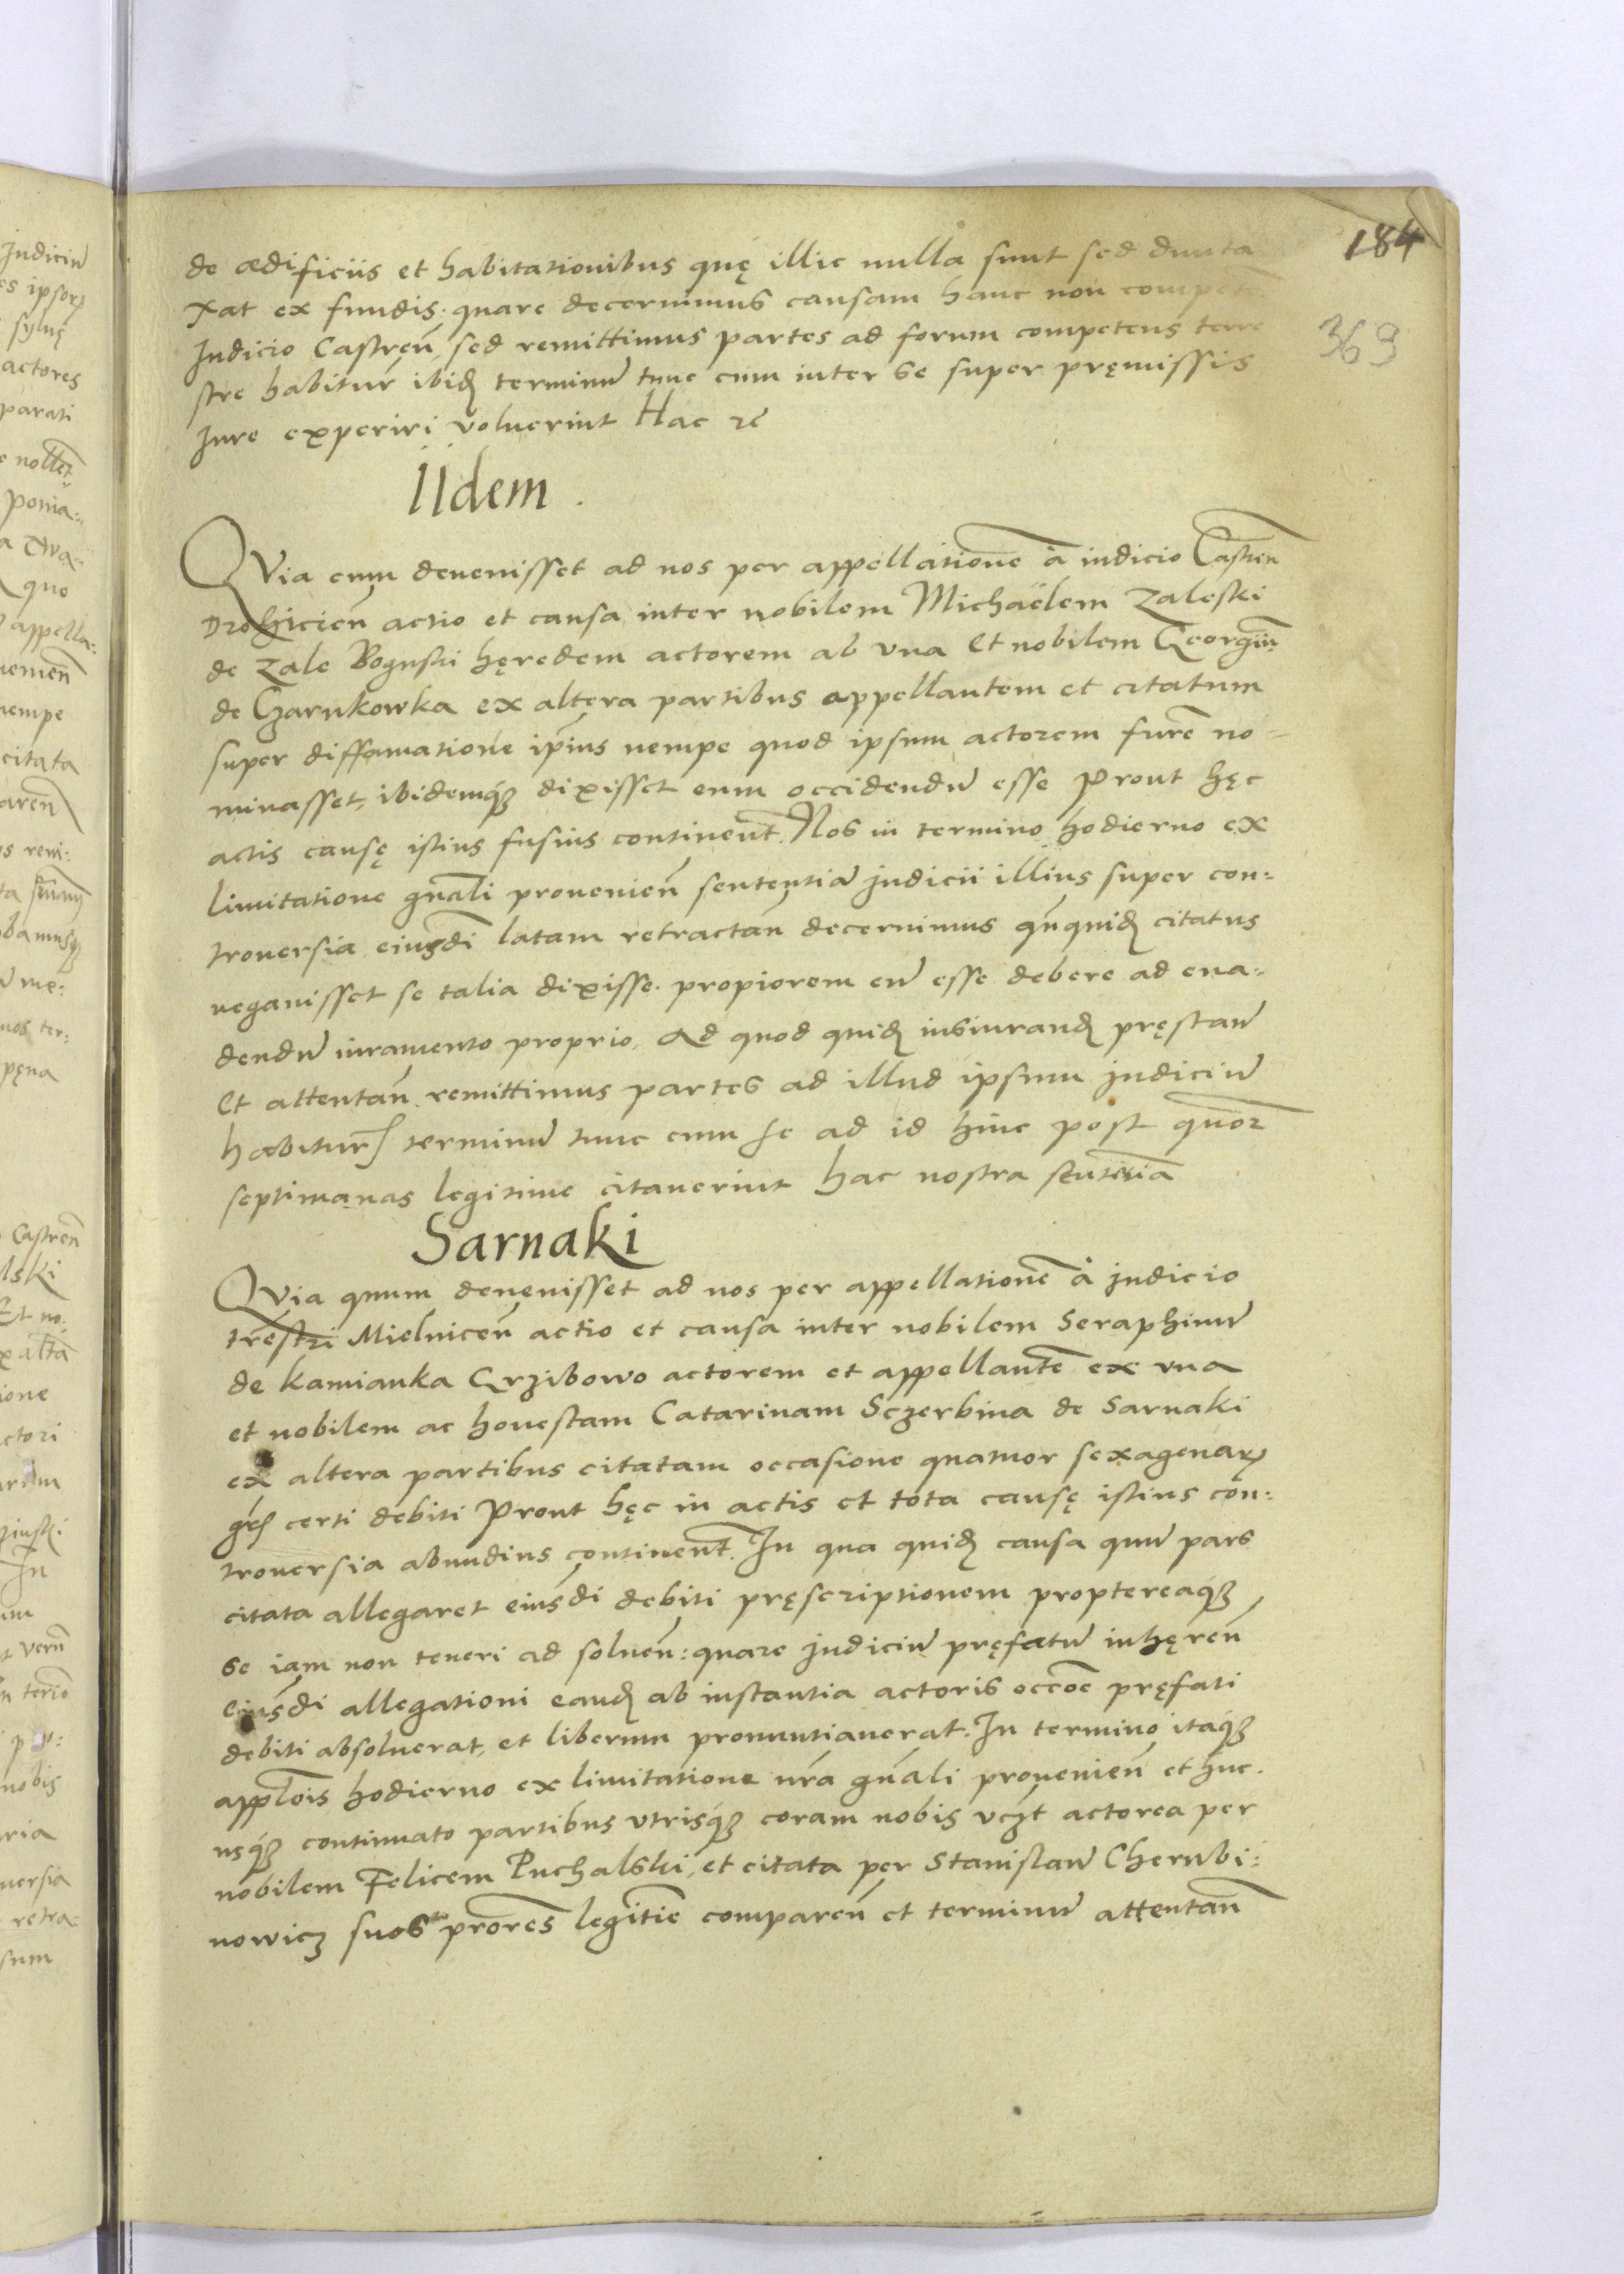 184
369
de ædificiis et habitationibus quę illic nulla sunt sed dunta
xat ex fundis: quare decernimus causam hanc non compete
Judicio Castreń sed remittimus partes ad forum competens terre
stre habitur̃ ibid terminũ tunc cum inter se super pręmissis
Jure experiri voluerint Hac rē
IIdem.
QVia cum devenisset ad nos per appellationē à iudicio Castreń
Drohicień actio et causa inter nobilem Michaëlem Zaleski
de Zale Boguski hęredem actorem ab vna Et nobilem Georgiũ
de Czarnkowka ex altera partibus appellantem et citatum
super diffamatione ip̃ius nempe quod ipsum actorem furē no-
minasset, ibidemq́ꝫ dixisset eum occidendũ esse Prout hęc
actis causę istius fusius continent̃. Nos in termino hodierno ex
limitatione gñali provenień sententiã judicii illius super con:
trouersia eiusdi latam retractań decernimus qñquid citatus
negauisset se talia dixisse. propiorem eũ esse debere ad eua-
dendũ iuramento proprio. Ad quod quid iusiurand pręstań
Et attentań remittimus partes ad illud ipsum judiciũ
habitur terminũ tunc cum se ad id hinc post quor
septimanas legitime citauerint hac nostra sententiã
Sarnaki
QVia quum deuenisset ad nos per appellationē à judicio
tr̃estri Mielniceń actio et causa inter nobilem Seraphinũ
de Kamianka Grzibowo actorem et appellantē ex vna
et nobilem ac honestam Catarinam Sczerbina de Sarnaki
ex altera partibus citatam occasione quatuor sexagenarꝝ
certi debiti Prout hęc in actis et tota causę istius con:
trouersia abundius continent̃. In qua quid causa quũ pars
citata allegaret eiusdi debiti pręscriptionem proptereaq́ꝫ
se iam non teneri ad soluen: quare judiciũ pręfatũ inhęreń
eiusdi allegationi eand ab instantia actoris occōe pręfati
debiti absoluerat, et liberum pronuntiauerat. In termino itaq́ꝫ
appl̃ois hodierno ex limitatione nr̃a gñali provenień et huc.
usq́ꝫ continuato partibus utrisq́ꝫ coram nobis vczt actorea per
nobilem Felicem Puchalski, et citata per Stanislaũ Cherubi:
nowicz suos prōres legitīe compareń et terminũ attentań